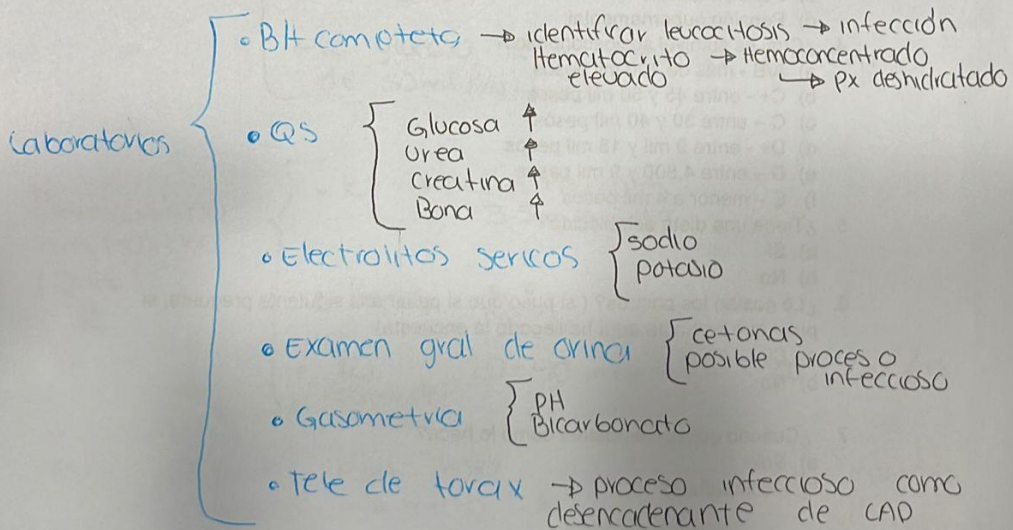 Laboratorios
• BH completa → identificar leucocitosis → infección
Hematocrito elevado → Hemoconcentrado
→ px deshidratado
• QS
Glucosa ↑
Urea ↑
Creatina ↑
Bona ↑
• Electrolitos sericos
sodio
potasio
• Examen gral de orina
cetonas
posible proceso
infeccioso
• Gasometria
PH
Bicarbonato
• Tele de torax → proceso infeccioso como
desencadenante de CAD